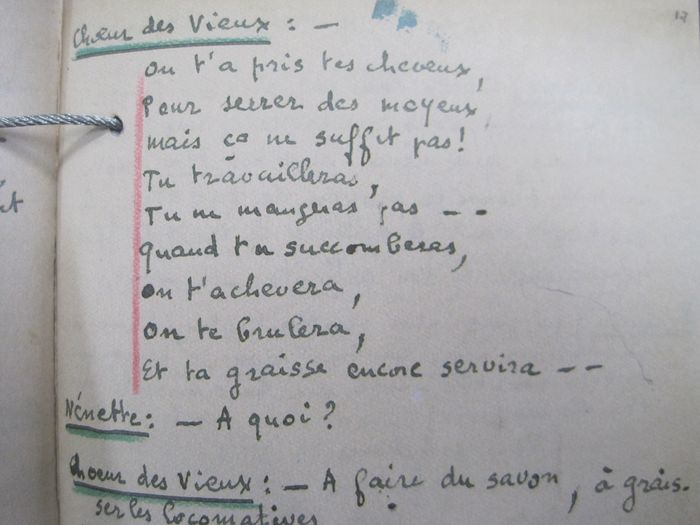 17
Chœur des Vieux : —
On t'a pris tes cheveux,
Pour serrer des moyeux
mais ça ne suffit pas!
Tu travailleras,
Tu ne mangeras pas — -
quand tu succomberas,
On t'achevera,
On te brulera,
Et ta graisse encore servira — -
Nénette : — A quoi ?
Choeur des Vieux : — A faire du savon, à grais-
ser les locomatives